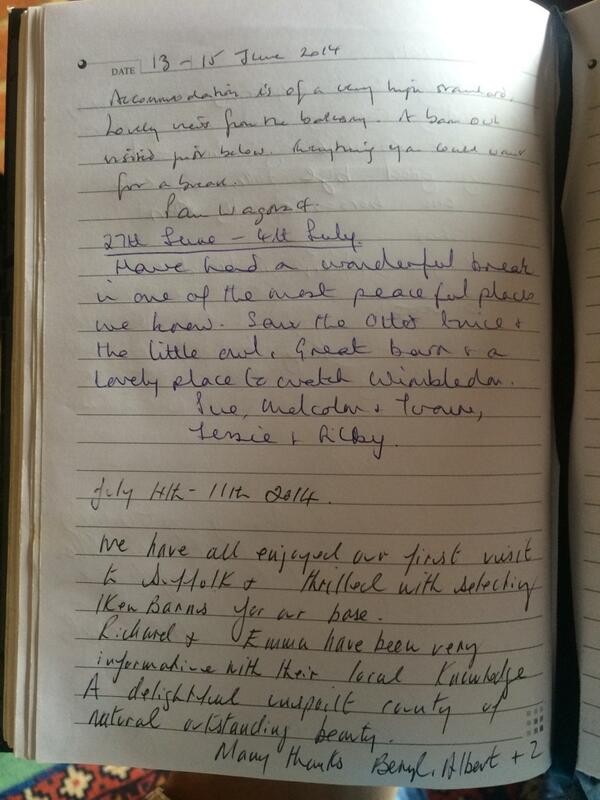 DATE 13 - 15 June 2014
Accommodation is of a very high standard.
Lovely views from the balcony. A barn owl
visited just below. Everything you could want
for a break.
Pam
27th June - 4th July.
Have had a wonderful break
in one of the most peaceful places
we know. Saw the Otter twice +
the little owl. Great barn + a
lovely place to watch Wimbledon.
Sue, Malcolm + Yvonne,
Jessie + Rilby.
July 4th - 11th 2014.
We have all enjoyed our first visit
to Suffolk + thrilled with selecting
Iken Barns for our base.
Richard + Emma have been very
informative with their local knowledge
A delightful unspoilt county of
natural outstanding beauty.
Many thanks Beryl, Albert + 2